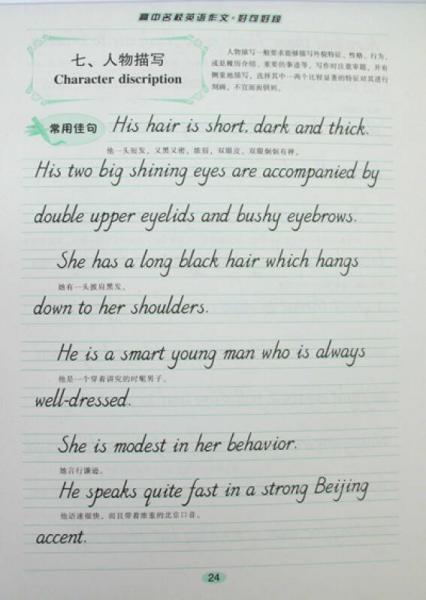 高中名校英语作文·好句好段
七、人物描写
Character discription
人物描写一般要求能够描写外貌特征、性格、行为,
或是履历介绍、重要的事迹等。写作时注意审题,并有
侧重地描写,选择其中一两个比较显著的特征对其进行
刻画,不宜面面俱到。
常用佳句
His hair is short, dark and thick.
他一头短发,又黑又密,浓眉,双眼皮,双眼炯炯有神。
His two big shining eyes are accompanied by
double upper eyelids and bushy eyebrows.
She has a long black hair which hangs
她有一头披肩黑发。
down to her shoulders.
He is a smart young man who is always
他是一个穿着讲究的时髦男子。
well-dressed.
She is modest in her behavior.
她言行谦逊。
He speaks quite fast in a strong Beijing
他语速很快,而且带着浓重的北京口音。
accent.
24